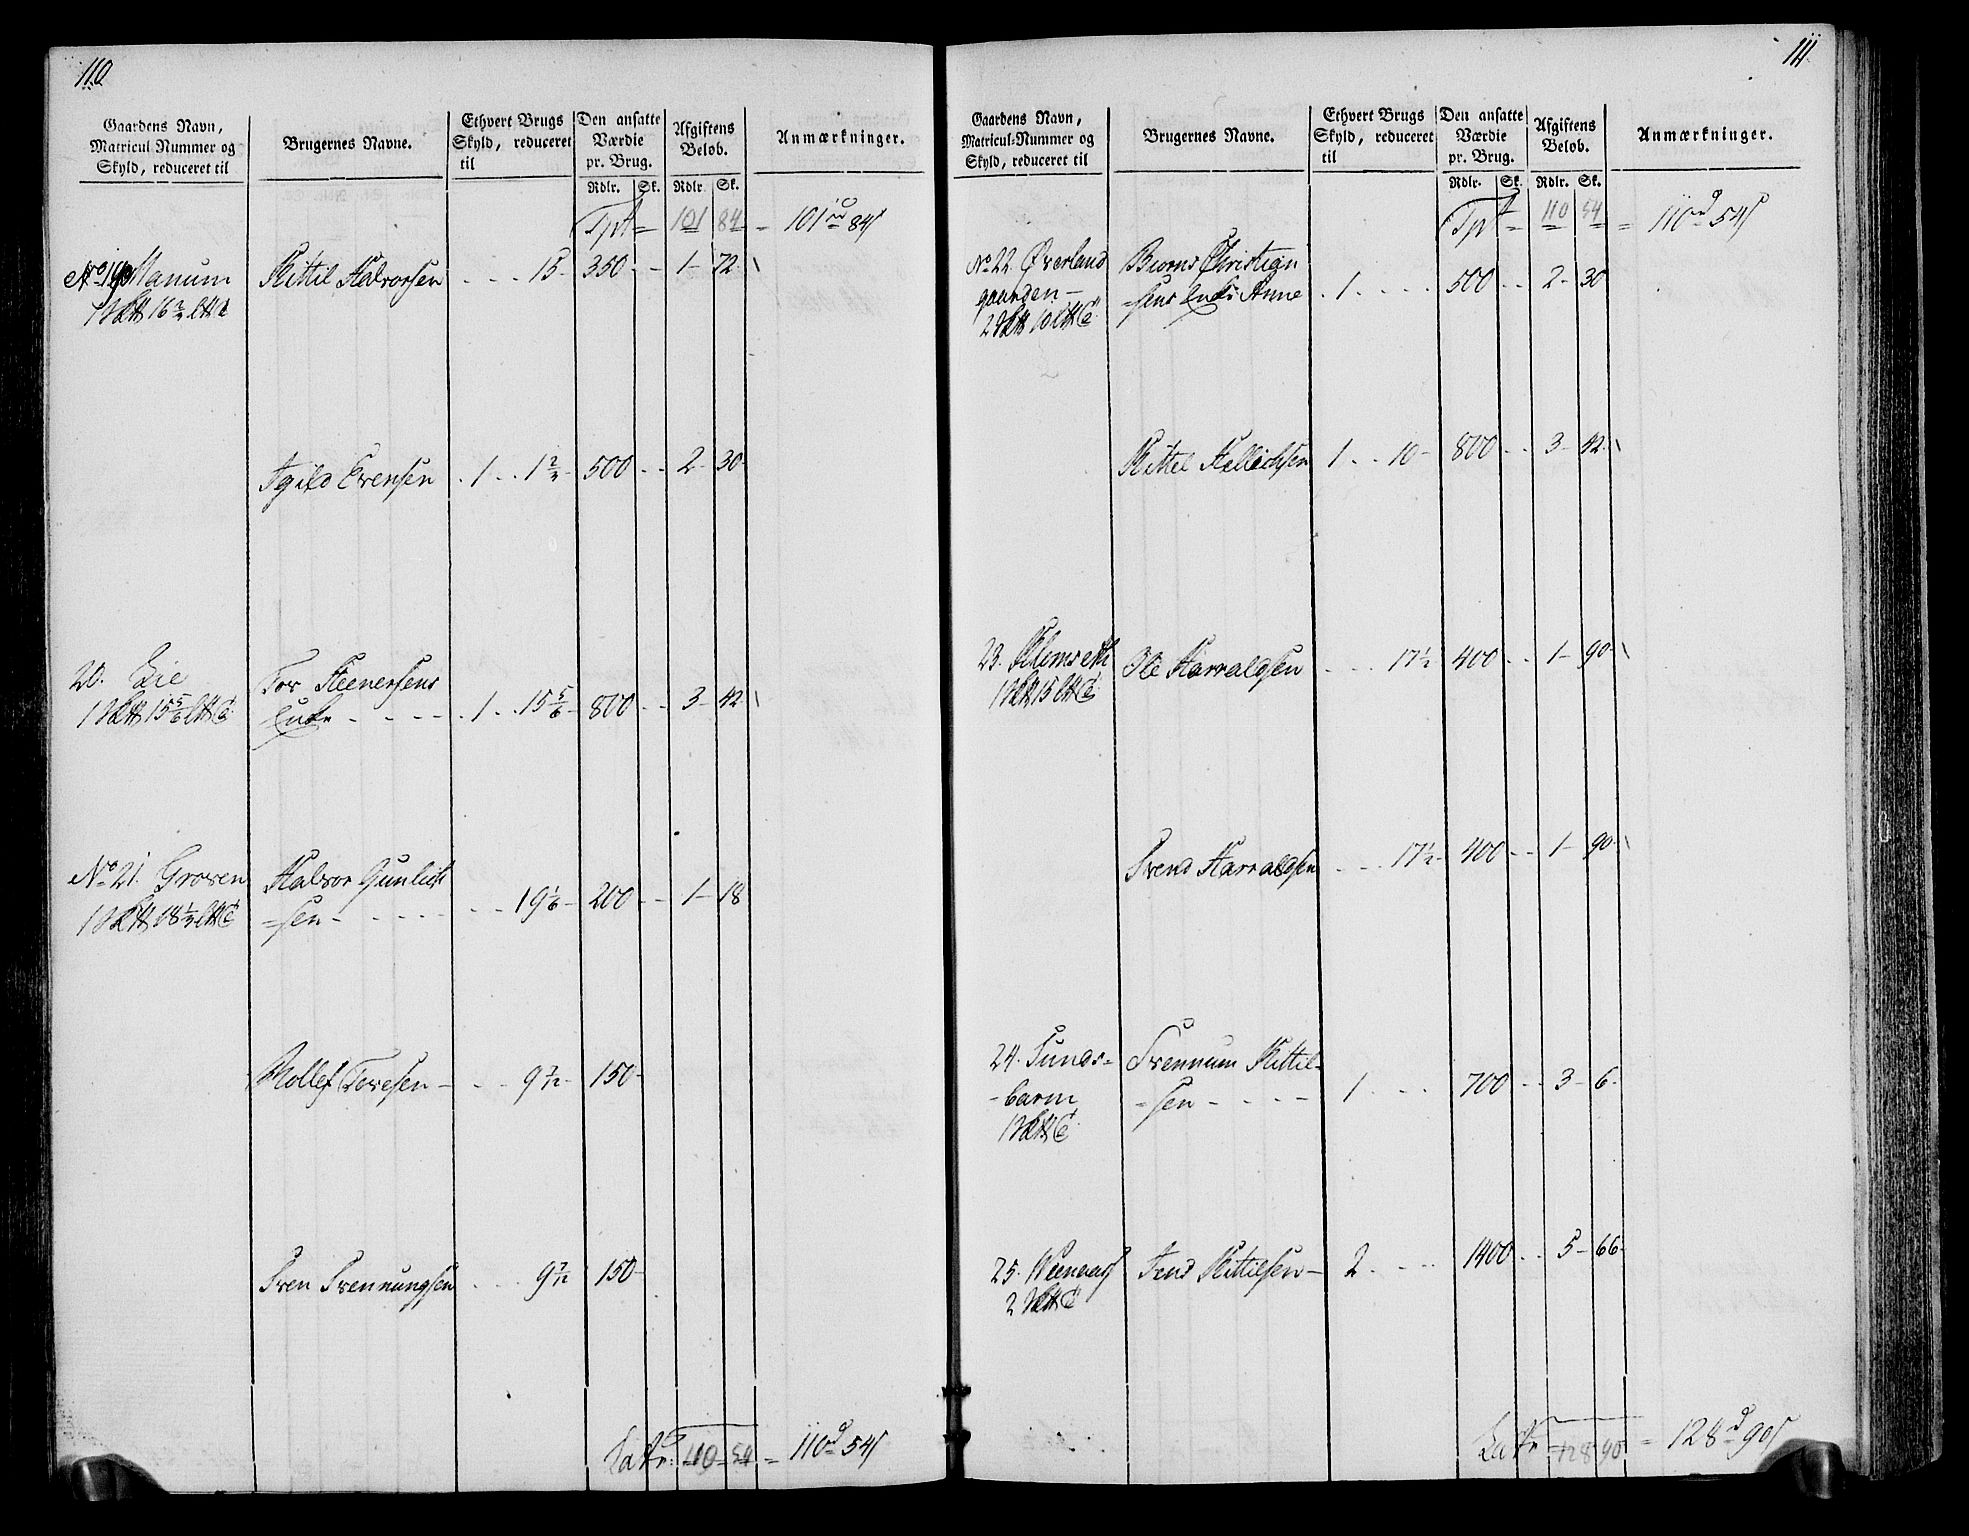 110
Gaardens Navn,
Matricul-Nummer og
Skyld, reduceret til
Brugernes Navne.
Ethvert Brugs
Skyld, reduceret
til
Den ansatte
Værdie
pr. Brug.
Rdlr. Sk.
Afgiftens
Beløb.
Rdlr. Sk.
Anmærkninger.
Tpt = 101 84 = 101 rd 84 s
No 19 Manum Kittil Halvorsen - - - 15 - 350 - - 1 - 72
Agild Evensen 1 - - 1 500 - - 2 - 30
20. Lie Tor Steenersens
Enke - - - - 1 - - 15 5/6 800 - - 3 - 42
No 21. Groven Halvor Gunlich
=sen - - - - - - 19 1/6 - 200 - - 1 - 18
Rollef Tovesen - - - 9 7/12 - 150 -
Sven Svennungsen - - - 9 7/12 150 -
Latr: 110 54 = 110 d 54 s
111
Gaardens Navn,
Matricul-Nummer og
Skyld, reduceret til
Brugernes Navne.
Ethvert Brugs
Skyld, reduceret
til
Den ansatte
Værdie
pr. Brug.
Rdlr. Sk.
Afgiftens
Beløb.
Rdlr. Sk.
Anmærkninger.
Tpt = 110 54 = 110 d 54 s
No 22. Øverland Biorns Christian
gaarden - =sens Enke Anne 1 - - - - 500 - - 2 - 30
Kittel Kellichsen 1 - - 10 - 800 - - 3 - 42
23. Ole Harraldsen - - - 17 1/2 400 - - 1 - 90
Svend Harraldsen - - - 17 1/2 - 400 - - 1 - 90
24. Sunds= Svennum Kittil=
=barm =sen - - - - 1 - - - 700 - - 3 - 6
25. Aend Kittilsen - 2 - - - 1400 - - 5 - 66
Latr = 128 90 = 128 d 90 s